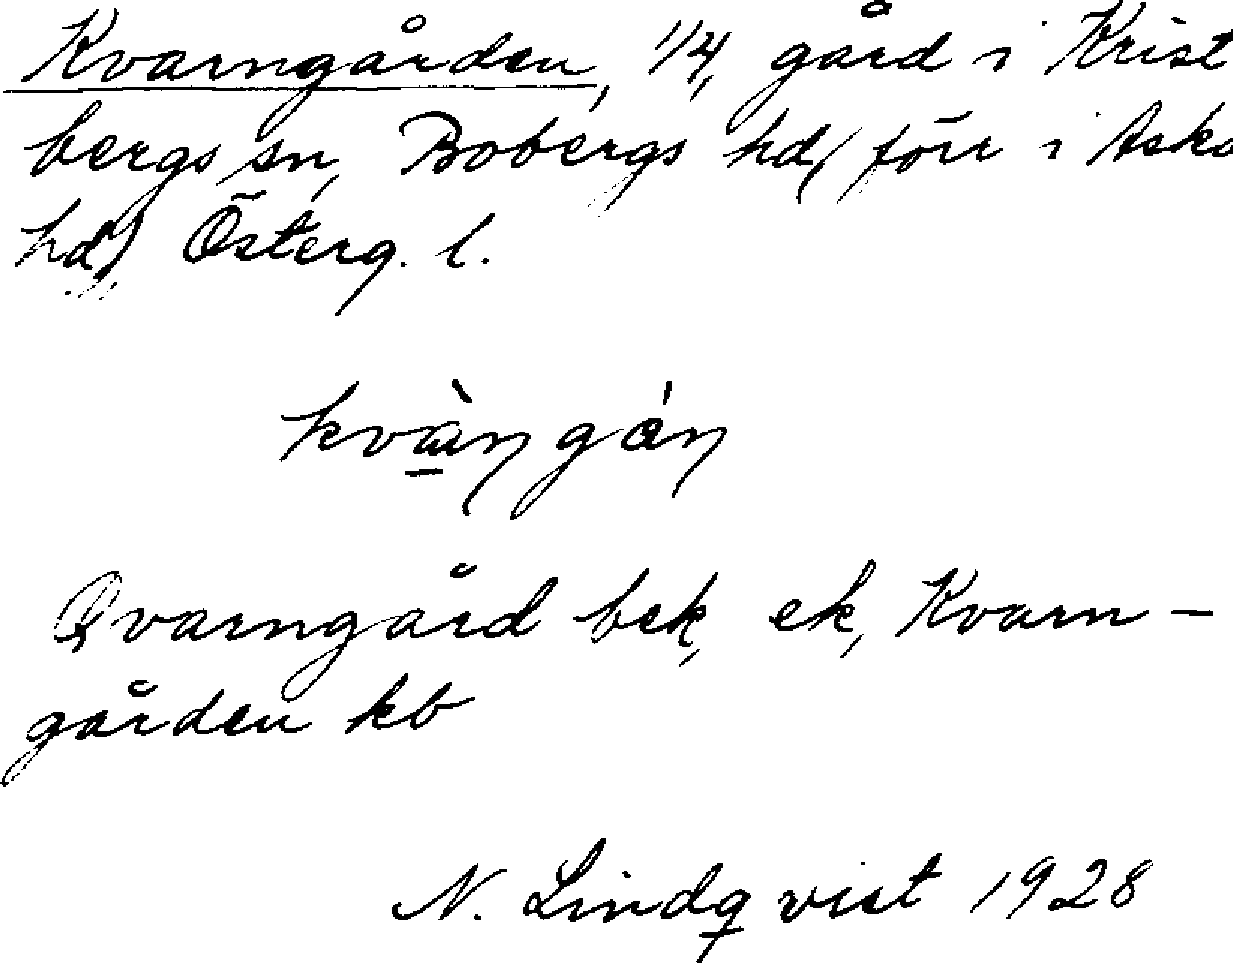 Kvarngården, 1/4, gård i Krist
bergs sn, Bobergs hd (förr i Aska
hd) Österg. l.
kvàṇgáṇ
Qvarngård bek, ek, Kvarn-
gården kb
N. Lindqvist 1928